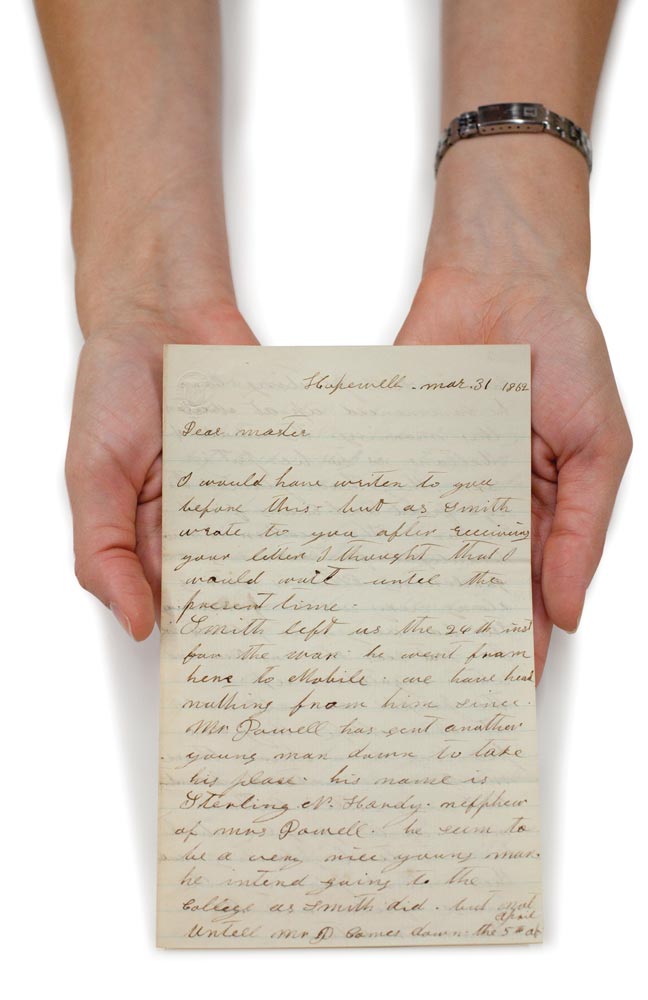 Hopewell. mar. 31 1862
Dear master
I would have writen to you
before this. but as Smith
wrote to you after receiving
your letter I thought that I
would wait untel the
present time.
Smith left us the 24th inst
for the war. he went from
here to Mobile. we have head
nothing from him since.
Mr. Powell has sent another
young man down to take
his place. his name is
Sterling N. Hardy. nefphew
of mrs Powell. he seem to
be a very nice young man.
he intend going to the
College as Smith did. but not
april
Untell mr P Comes down. the 5th of